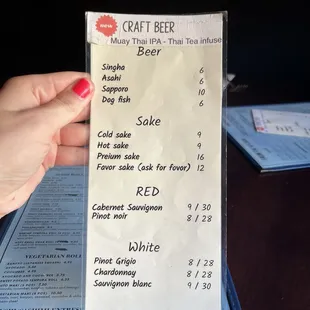 CRAFT BEER
Muay Thai IPA - Thai Tea infuse
Beer
Singha 6
Asahi 6
Sapporo 10
Dog fish 6
Sake
Cold sake 9
Hot sake 9
Preium sake 16
Favor sake (ask for favor) 12
RED
Cabernet Sauvignon 9 / 30
Pinot noir 8 / 28
White
Pinot Grigio 8 / 28
Chardonnay 8 / 28
Sauvignon blanc 9 / 30
VEGETARIAN ROLL